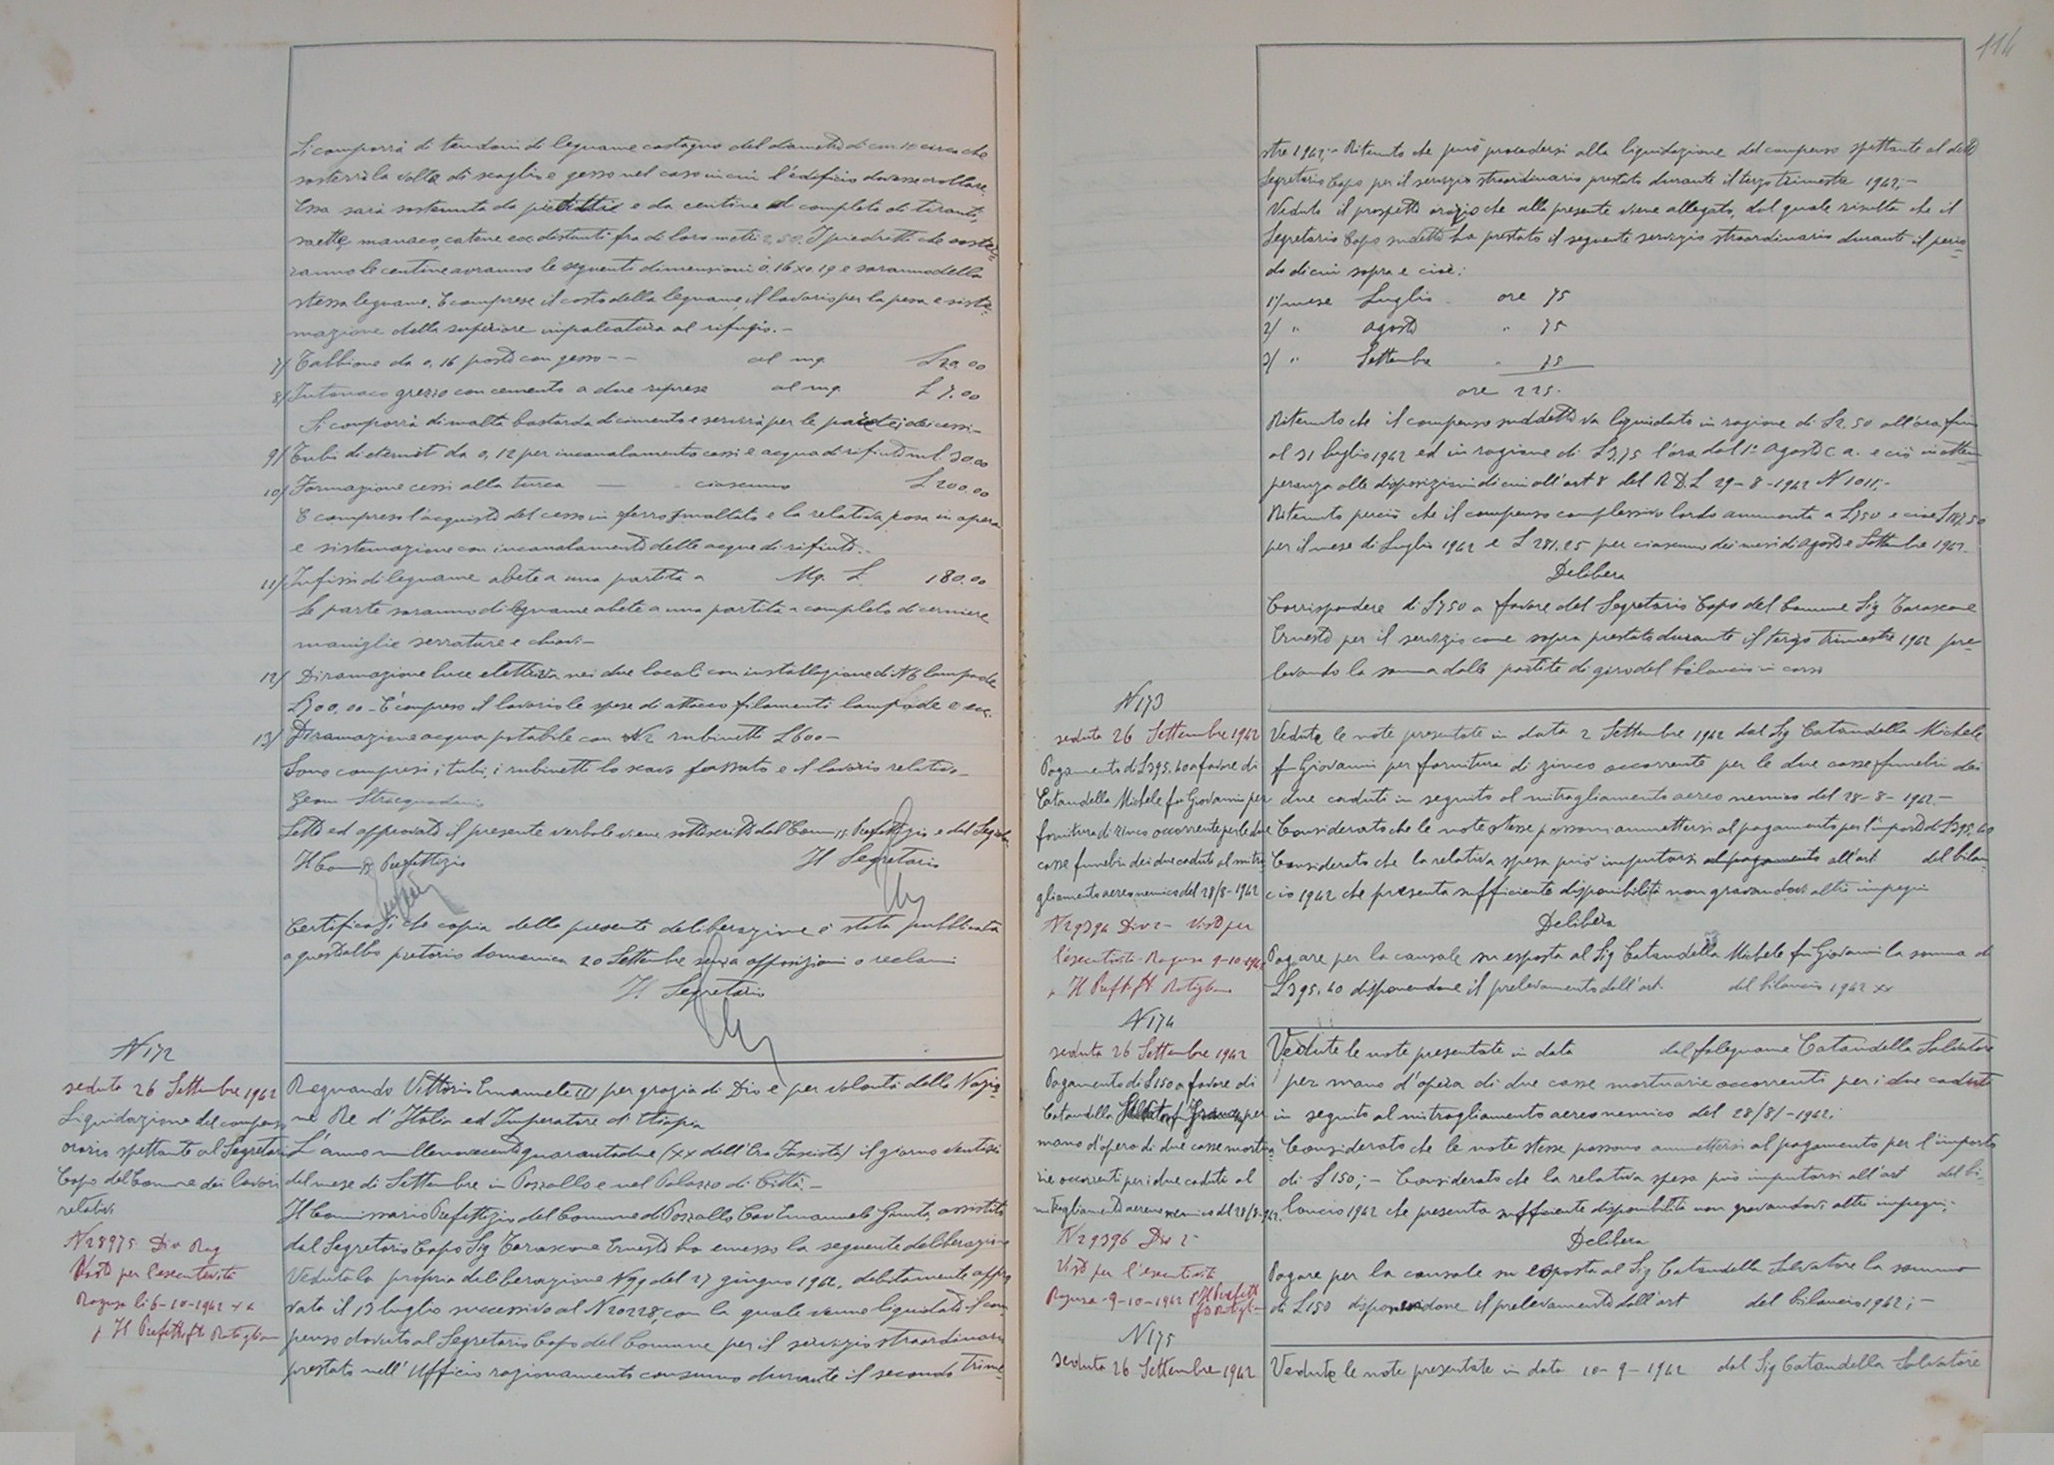 Si comporrà di tendoni di legname castagno del diametro di cm 10 circa che
sosterrà la volta di scaglie e gesso nel caso in cui l'edificio dovesse crollare.
Essa sarà sostenuta da piedritti e da centine completo di tiranti,
saette, monaco, catene ecc distanti fra di loro metri 2,50. I piedritti che soste
ranno le centine avranno le seguenti dimensioni 0,16x0,19 e saranno della
stessa legname. È comprese il costo della legname, il lavorio per la posa e siste
mazione della superiore impalcatura al rifugio.-
7/ Gabbione da 0,16 posto con gesso -- al mq. £ 20,00
8/ Intonaco grezzo con cemento a due riprese al mq. £ 7.00
Si comporrà di malta bastarda di cimento e servirà per le pareti dei cessi-
9/ Tubi di eternit da 0,12 per incanalamento cessi e acqua di rifiuto ml 30,00
10/ Formazione cessi alla turca — ciascuno £ 200.00
È compreso l'acquisto del cesso in ferro smaltato e la relativa posa in opera
e sistemazione con incanalamento delle acque di rifiuto.-
11/ Infissi di legname abete a una partita a Mq. £. 180.00
Le parte saranno di legname abete a una partita a completo di cerniere
maniglie serrature e chiavi-
12/ Diramazione luce elettrica nei due locali con installazione di N 6 lampade
£ 300,00 - È compreso il lavorio le spese di attacco filamenti lampade e ecc.
13/ Diramazione acqua potabile con N 2 rubinetti £ 600-
Sono compresi i tubi, i rubinetti lo scavo fossato e il lavorio relativo-
Geom Stracquadanio
Letto ed approvato il presente verbale viene sottoscritto dal Comm rio Prefettizio e dal Segretario
Il Comm rio Prefettizio Il Segretario
Certificasi che copia della presente deliberazione è stata pubblicata
a quest'albo pretorio domenica 20 Settembre senza opposizioni o reclami
Il Segretario
N 172
seduta 26 Settembre 1942
Liquidazione del compenso
orario spettante al Segretario
Capo del Comune dei lavori
relativi
N 28975 Div Rag
Visto per l'esecutività
Ragusa li 6-10-1942 XX
p Il Prefetto fto Ratiglia
Regnando Vittorio Emanuele III per grazia di Dio e per volontà della Nazio-
ne Re d'Italia ed Imperatore di Etiopia
L'anno millenovecentoquarantadue (XX dell'Era Fascista) il giorno ventisei
del mese di Settembre in Pozzallo e nel Palazzo di Città.-
Il Commissario Prefettizio del Comune di Pozzallo Cav Emanuele Giunta, assistito
dal Segretario Capo Sig Tarascone Ernesto ha emesso la seguente deliberazione
Veduta la propria deliberazione N 99 del 27 giugno 1942, debitamente appro
vata il 13 luglio successivo al N 20228, con la quale venne liquidato il com
penso dovuto al Segretario Capo del Comune per il servizio straordinario
prestato nell'Ufficio razionamento consumo durante il secondo Trime-
114
stre 1942;- Ritenuto che può procedersi alla liquidazione del compenso spettante al detto
Segretario Capo per il servizio straordinario prestato durante il terzo trimestre 1942;-
Veduto il prospetto orario che alla presente viene allegato, dal quale risulta che il
Segretario Capo suddetto ha prestato il seguente servizio straordinario durante il perio=
do di cui sopra e cioè:
1°/ mese Luglio ore 75
2/ " agosto " 75
3/ " Settembre " 75
ore 225.
Ritenuto che il compenso suddetto va liquidato in ragione di £ 2.50 all'ora fino
al 31 luglio 1942 ed in ragione di £ 3,75 l'ora dal 1° agosto c a. e ciò in ottem-
peranza alle disposizioni di cui all'art 8 del R.D.L 29-8-1942 N 1011;-
Ritenuto perciò che il compenso complessivo lordo ammonta a £ 750 e cioè £ 187,50
per il mese di Luglio 1942 e £ 281.25 per ciascuno dei mesi di Agosto e Settembre 1942.
Delibera
Corrispondere di £ 750 a favore del Segretario Capo del Comune Sig Tarascone
Ernesto per il servizio come sopra prestato durante il terzo trimestre 1942 pre-
levando la somma dalle partite di giro del bilancio in corso
N 173
seduta 26 Settembre 1942
Pagamento di £ 395.40 a favore di
Catandella Michele fu Giovanni per
fornitura di zinco occorrente per le due
casse funebri dei due caduti al mitra
gliamento aereo nemico del 28/8-1942
N 29394 Div 2- Visto per
l'esecutività - Ragusa 9-10-1942
p Il Prefto fto Ratiglia
Vedute le note presentate in data 2 Settembre 1942 dal Sig Catandella Michele
fu Giovanni per fornitura di zinco occorrente per le due casse funebri dei
due caduti in seguito al mitragliamento aereo nemico del 28-8-1942.-
Considerato che le note stesse possono ammettersi al pagamento per l'importo di £ 395,40
Considerato che la relativa spesa può imputarsi al pagamento all'art del bilan-
cio 1942 che presenta sufficiente disponibilità non gravandovi altri impegni
Delibera
Pagare per la causale su esposta al Sig Catandella Michele fu Giovanni la somma di
£ 395.40 disponendone il prelevamento dall'art. del bilancio 1942 XX
N 174
seduta 26 Settembre 1942
Pagamento di £ 150 a favore di
Catandella per
mano d'opera di due casse mortua-
rie occorrenti per i due caduti al
mitragliamento aereo nemico del 28/8-942.
N 29396 Div 2-
Visto per l'esecutività
Ragusa - 9-10-1942 p Il Prefetto
fto Ratiglia
Vedute le note presentate in data dal falegname Catandella Salvatore
per mano d'opera di due casse mortuarie occorrenti per i due caduti
in seguito al mitragliamento aereo nemico del 28/8/-1942;
Considerato che le note stesse possono ammettersi al pagamento per l'importo
di £ 150;- Considerato che la relativa spesa può imputarsi all'art del bi-
lancio 1942 che presenta sufficiente disponibilità non gravandovi altri impegni;-
Delibera
Pagare per la causale su esposta al Sig Catandella Salvatore la somma
di £ 150 disponendone il prelevamento dall'art del bilancio 1942;-
N 175
seduta 26 Settembre 1942
Vedute le note presentate in data 10-9-1942 dal Sig Catandella Salvatore